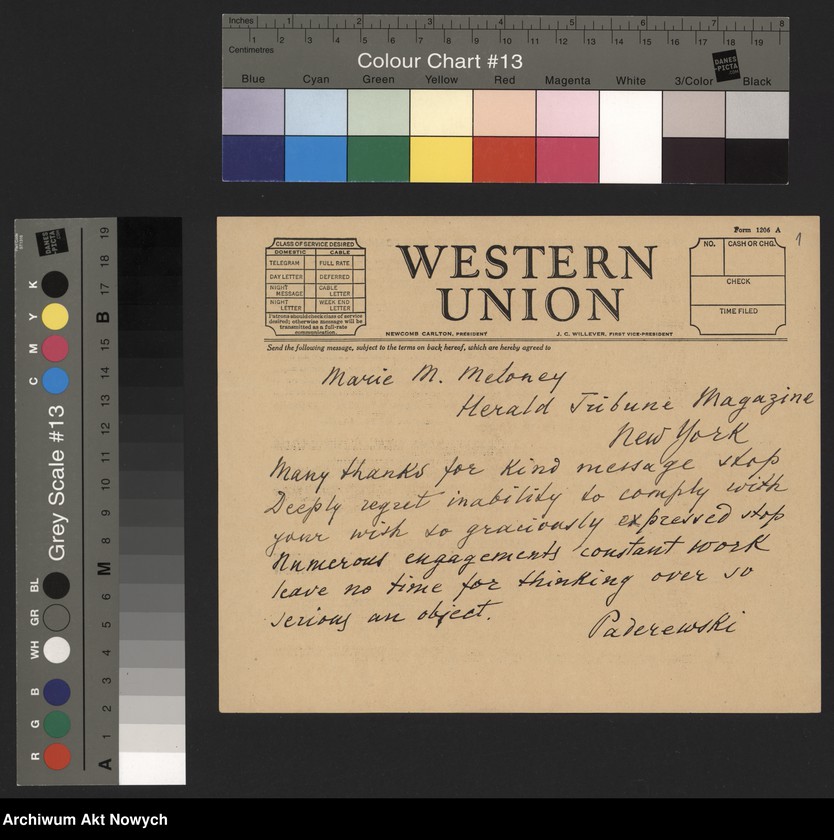 Inches 1 2 3 4 5 6 7 8
Centimetres 1 2 3 4 5 6 7 8 9 10 11 12 13 14 15 16 17 18 19
Colour Chart #13
DANES-PICTA.COM
Blue Cyan Green Yellow Red Magenta White 3/Color Black
Grey Scale #13
DANES-PICTA.COM
R G B WH GR BL C M Y K
A 1 2 3 4 5 6 M 8 9 10 11 12 13 14 15 B 17 18 19
Form 1206 A
1
CLASS OF SERVICE DESIRED
DOMESTIC CABLE
TELEGRAM FULL RATE
DAY LETTER DEFERRED
NIGHT MESSAGE CABLE LETTER
NIGHT LETTER WEEK END LETTER
Patrons should check class of service
desired; otherwise message will be
transmitted as a full-rate
communication.
WESTERN
UNION
NEWCOMB CARLTON, PRESIDENT J. C. WILLEVER, FIRST VICE-PRESIDENT
NO. CASH OR CHG.
CHECK
TIME FILED
Send the following message, subject to the terms on back hereof, which are hereby agreed to
Marie M. Meloney
Herald Tribune Magazine
New York
Many thanks for kind message stop
Deeply regret inability to comply with
your wish so graciously expressed stop
Numerous engagements constant work
leave no time for thinking over so
serious an object.
Paderewski
Archiwum Akt Nowych